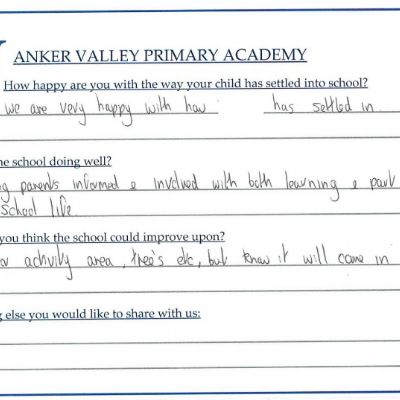 ANKER VALLEY PRIMARY ACADEMY
How happy are you with the way your child has settled into school?
we are very happy with how has settled in.
he school doing well?
g parents informed & involved with both learning & part
school life.
you think the school could improve upon?
or activity area, tree's etc, but know it will come in
g else you would like to share with us: